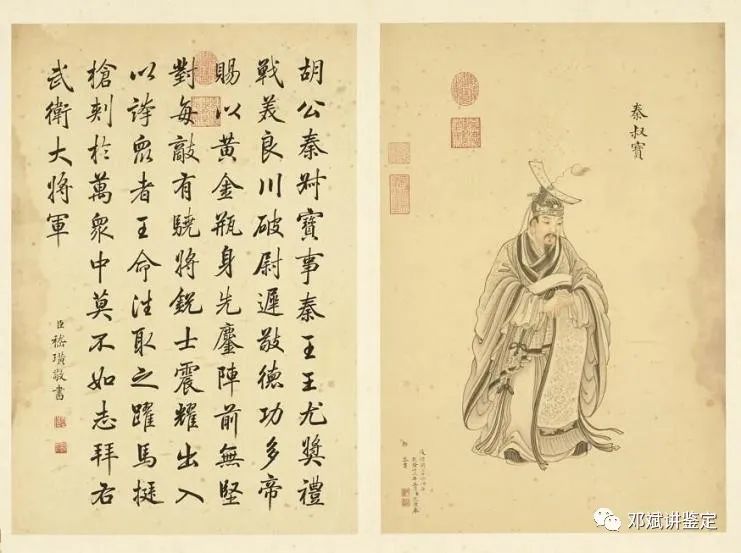 秦叔寶
胡公秦叔寶事秦王王尤獎禮
戰美良川破尉遲敬德功多帝
賜以黃金瓶身先鏖陣前無堅
對每敵有驍將銳士震耀出入
以誇眾者王命往取之躍馬挺
槍刺於萬眾中莫不如志拜右
武衛大將軍
臣嵇璜敬書
邓斌讲鉴定